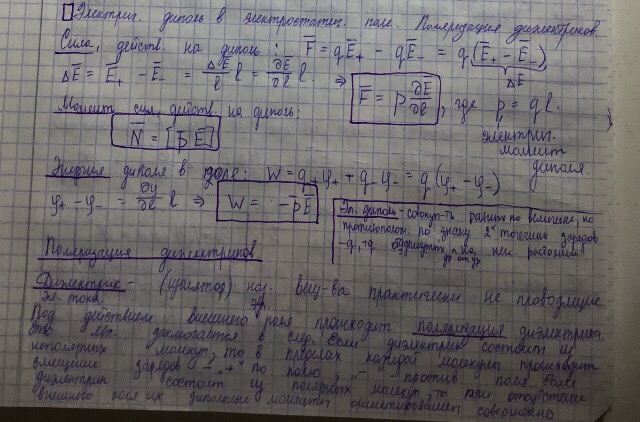 Электрич. диполь в электростатич. поле. Поляризация диэлектриков
Сила, действ. на диполь: F̄ = qĒ₊ − qĒ₋ = q(Ē₊ − Ē₋)
ΔĒ
ΔĒ = Ē₊ − Ē₋ = ΔĒ/l l = ∂Ē/∂l l. ⇒ F̄ = p ∂Ē/∂l, где p = ql.
электрич. момент диполя
Момент сил, действ. на диполь:
N̄ = [p̄ Ē]
Энергия диполя в поле: W = q₊φ₊ + q₋φ₋ = q(φ₊ − φ₋)
φ₊ − φ₋ = ∂φ/∂l l ⇒ W = −p̄Ē
Эл. диполь - совокуп-ть равных по величине, но
противополож. по знаку 2ˣ точечных зарядов
-q, +q, на расстоянии
др от др
Поляризация диэлектриков
Диэлектрик - (изолятор) наз. вещ-ва практически не проводящие
эл. тока
Под действием внешнего эл. поля происходит поляризация диэлектрика
это яв. заключается в след. Если диэлектрик состоит из
неполярных молекул, то в пределах каждой молекулы происходит
смещение зарядов - "+" по полю, "-" - против поля. Если
диэлектрик состоит из полярных молекул, то при отсутствии
внешнего поля их дипольные моменты ориентированы совершенно